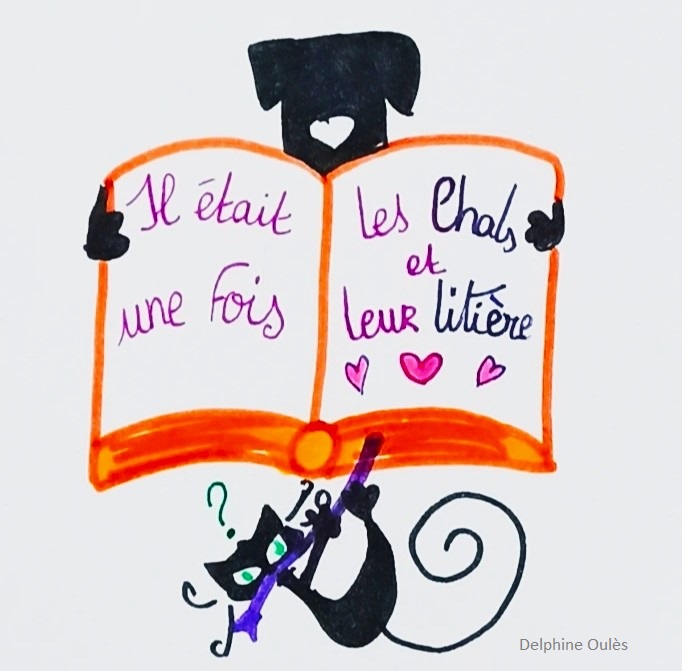 Il était
une fois
les Chats
et
leur litière
?
?
Delphine Oulès